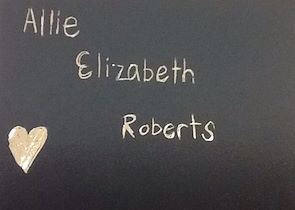 Allie
Elizabeth
Roberts